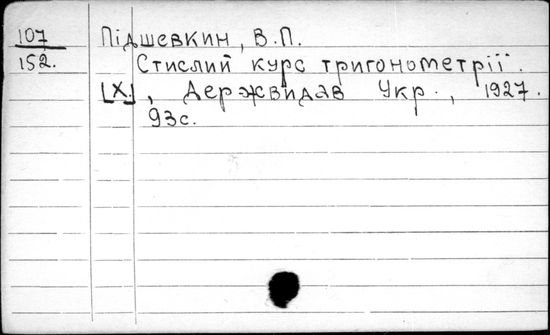 107 Підшевкин, В.П.
152. Стислий курс тригонометрії.
[Х], Держвидав Укр., 1927.
93с.